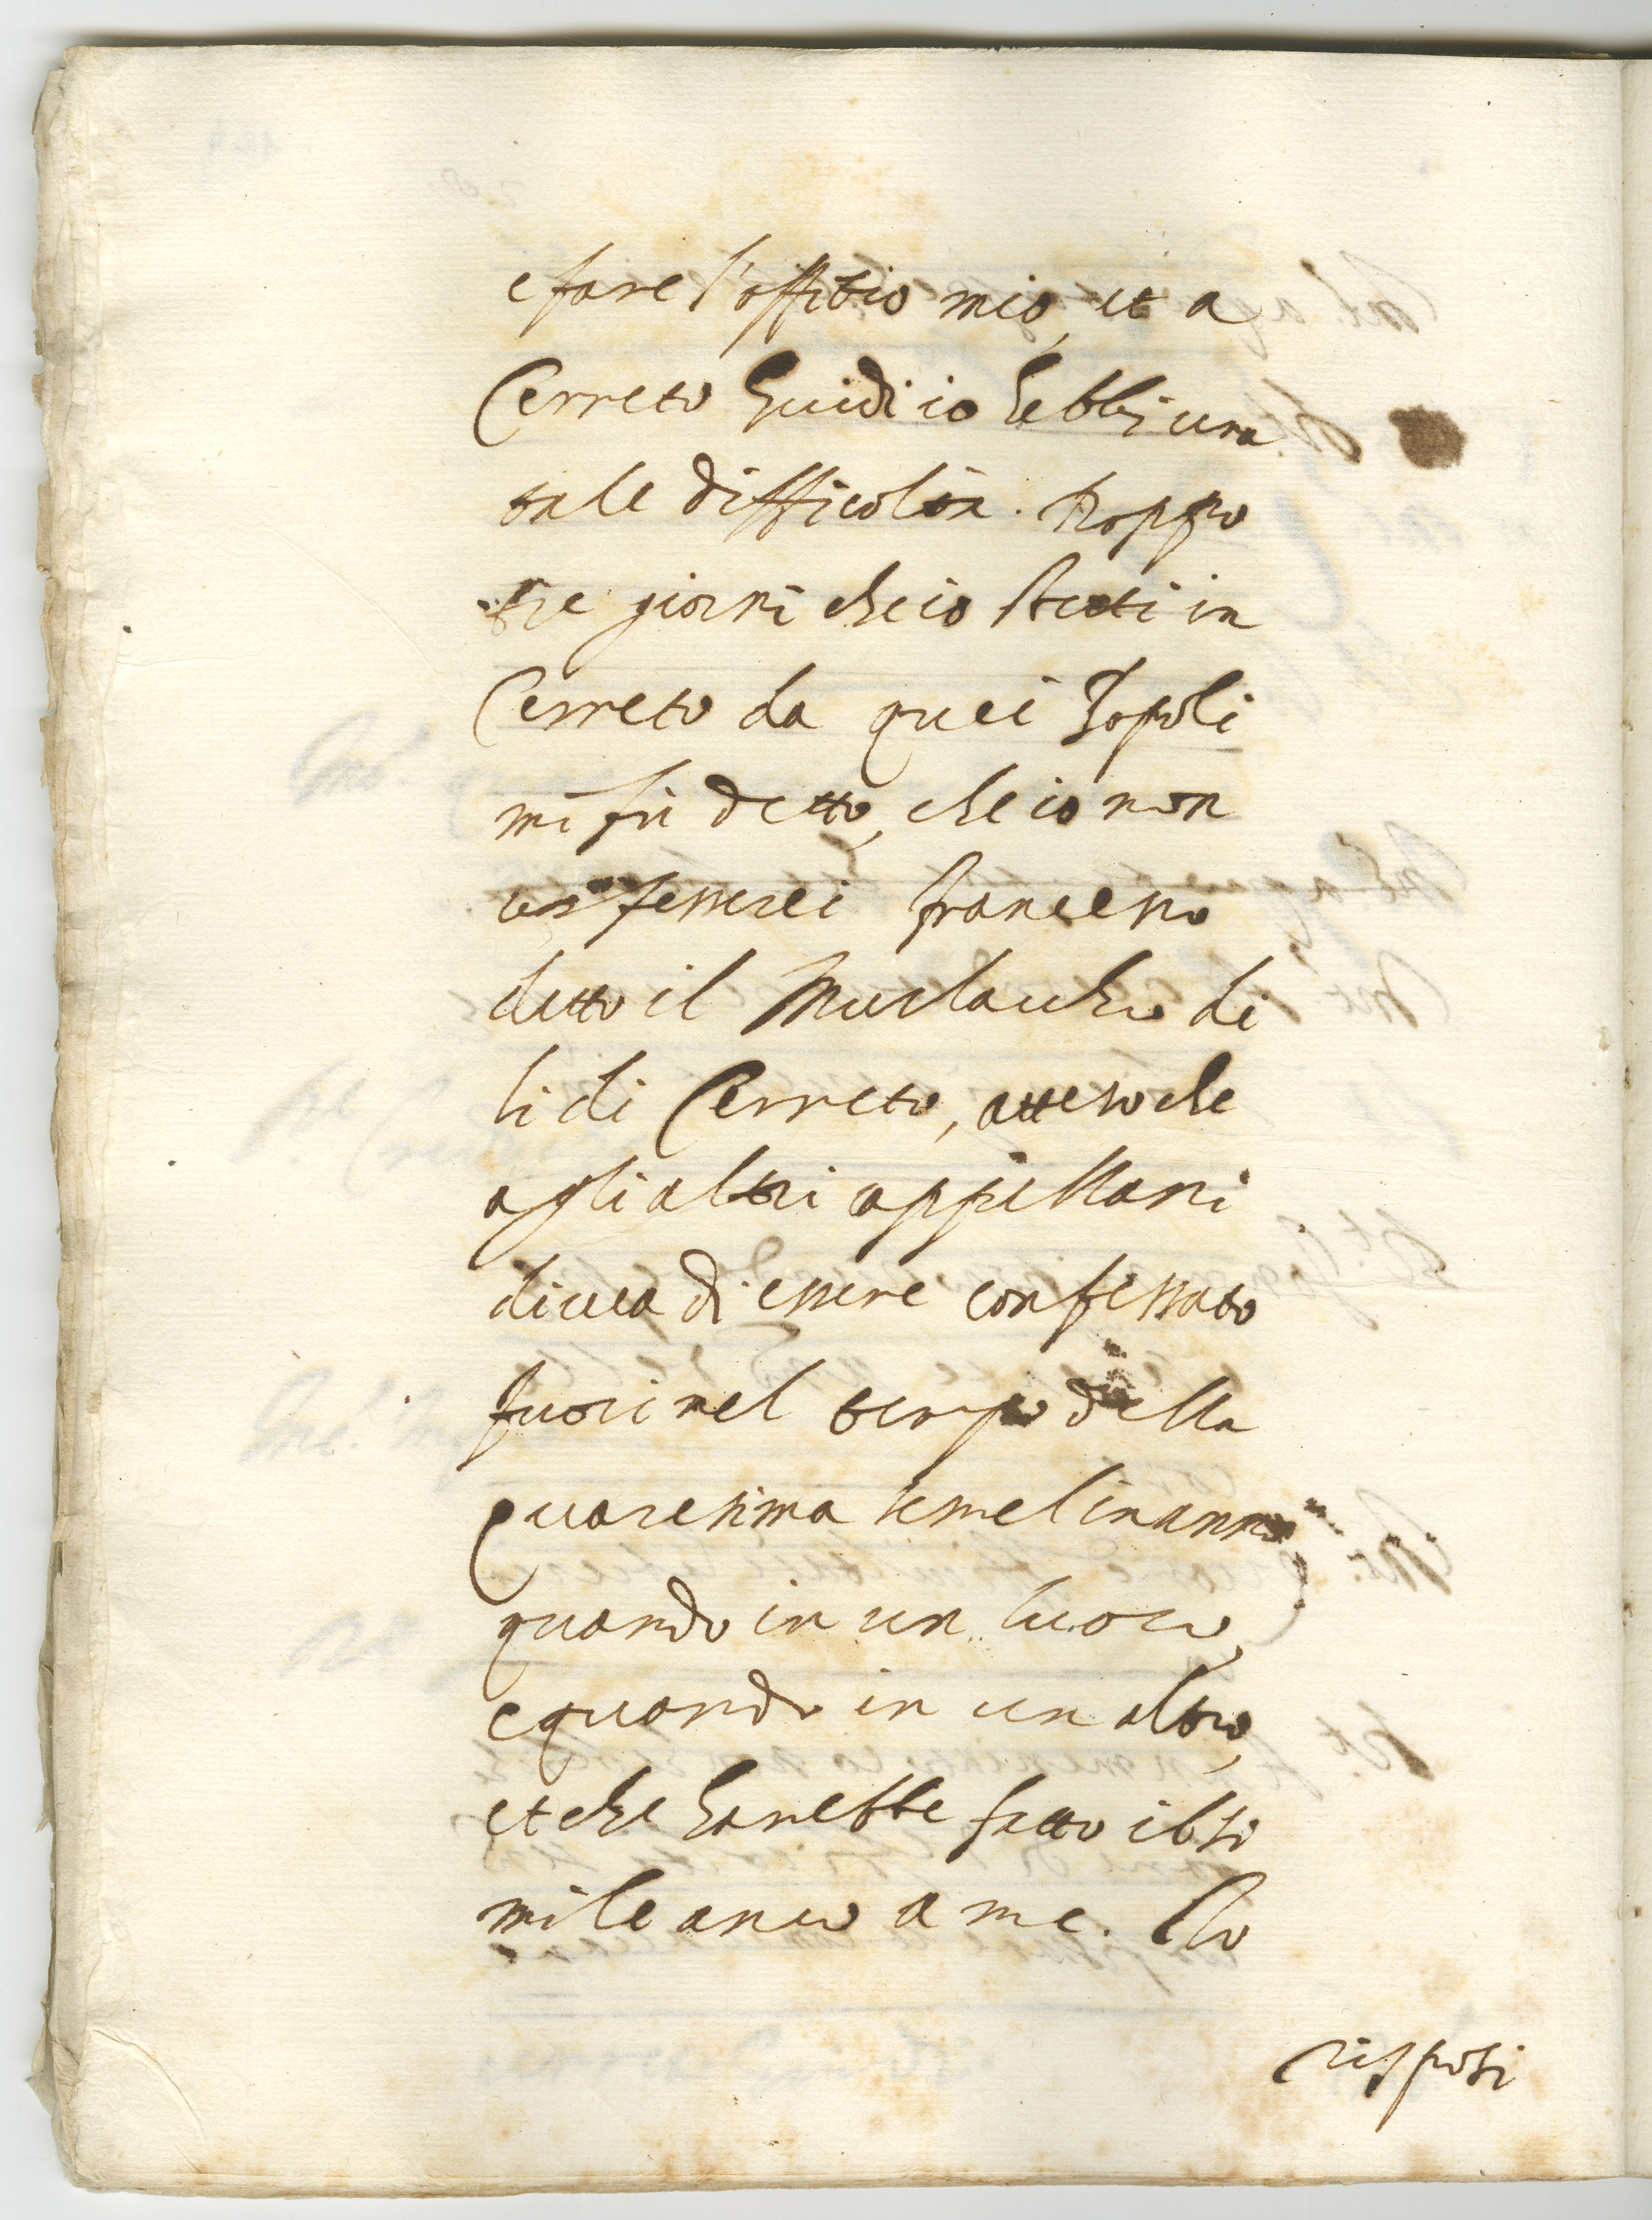 e fare l'offitio mio, et a
Cerreto Guidi io hebbi una
tale difficoltà. Doppo
tre giorni che io stetti in
Cerreto da quei Popoli
mi fù detto, che io non
confesserei Francesco
detto il di
lì di Cerreto, atteso che
agli altri appellani
diceva di essere confessato
fuori nel tempo della
quaresima semel in anno
quando in un luoco,
e quando in un altro,
et che harebbe fatto il si
mile anco a me. Io
risposi